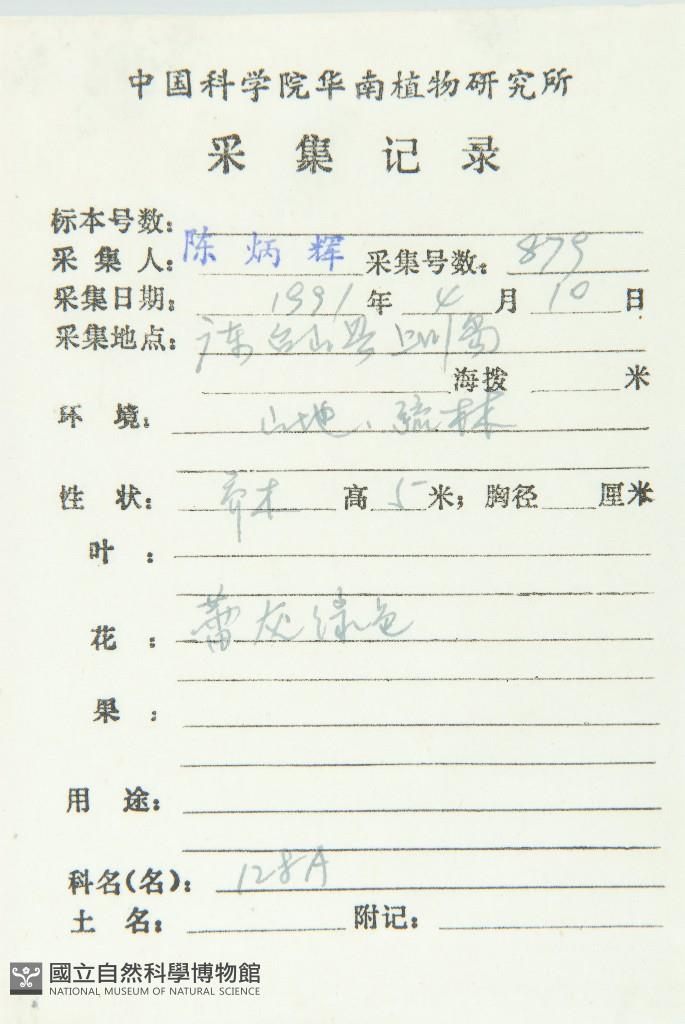 中国科学院华南植物研究所
采集记录
标本号数:
采集人: 陈炳辉 采集号数: 879
采集日期: 1991年4月10日
采集地点: 广东台山县上川岛
海拨 米
环境: 山地、疏林
性状: 乔木 高5米; 胸径 厘米
叶:
花: 蕾灰绿色
果:
用途:
科名(名): 128A
土名: 附记:
國立自然科學博物館
NATIONAL MUSEUM OF NATURAL SCIENCE